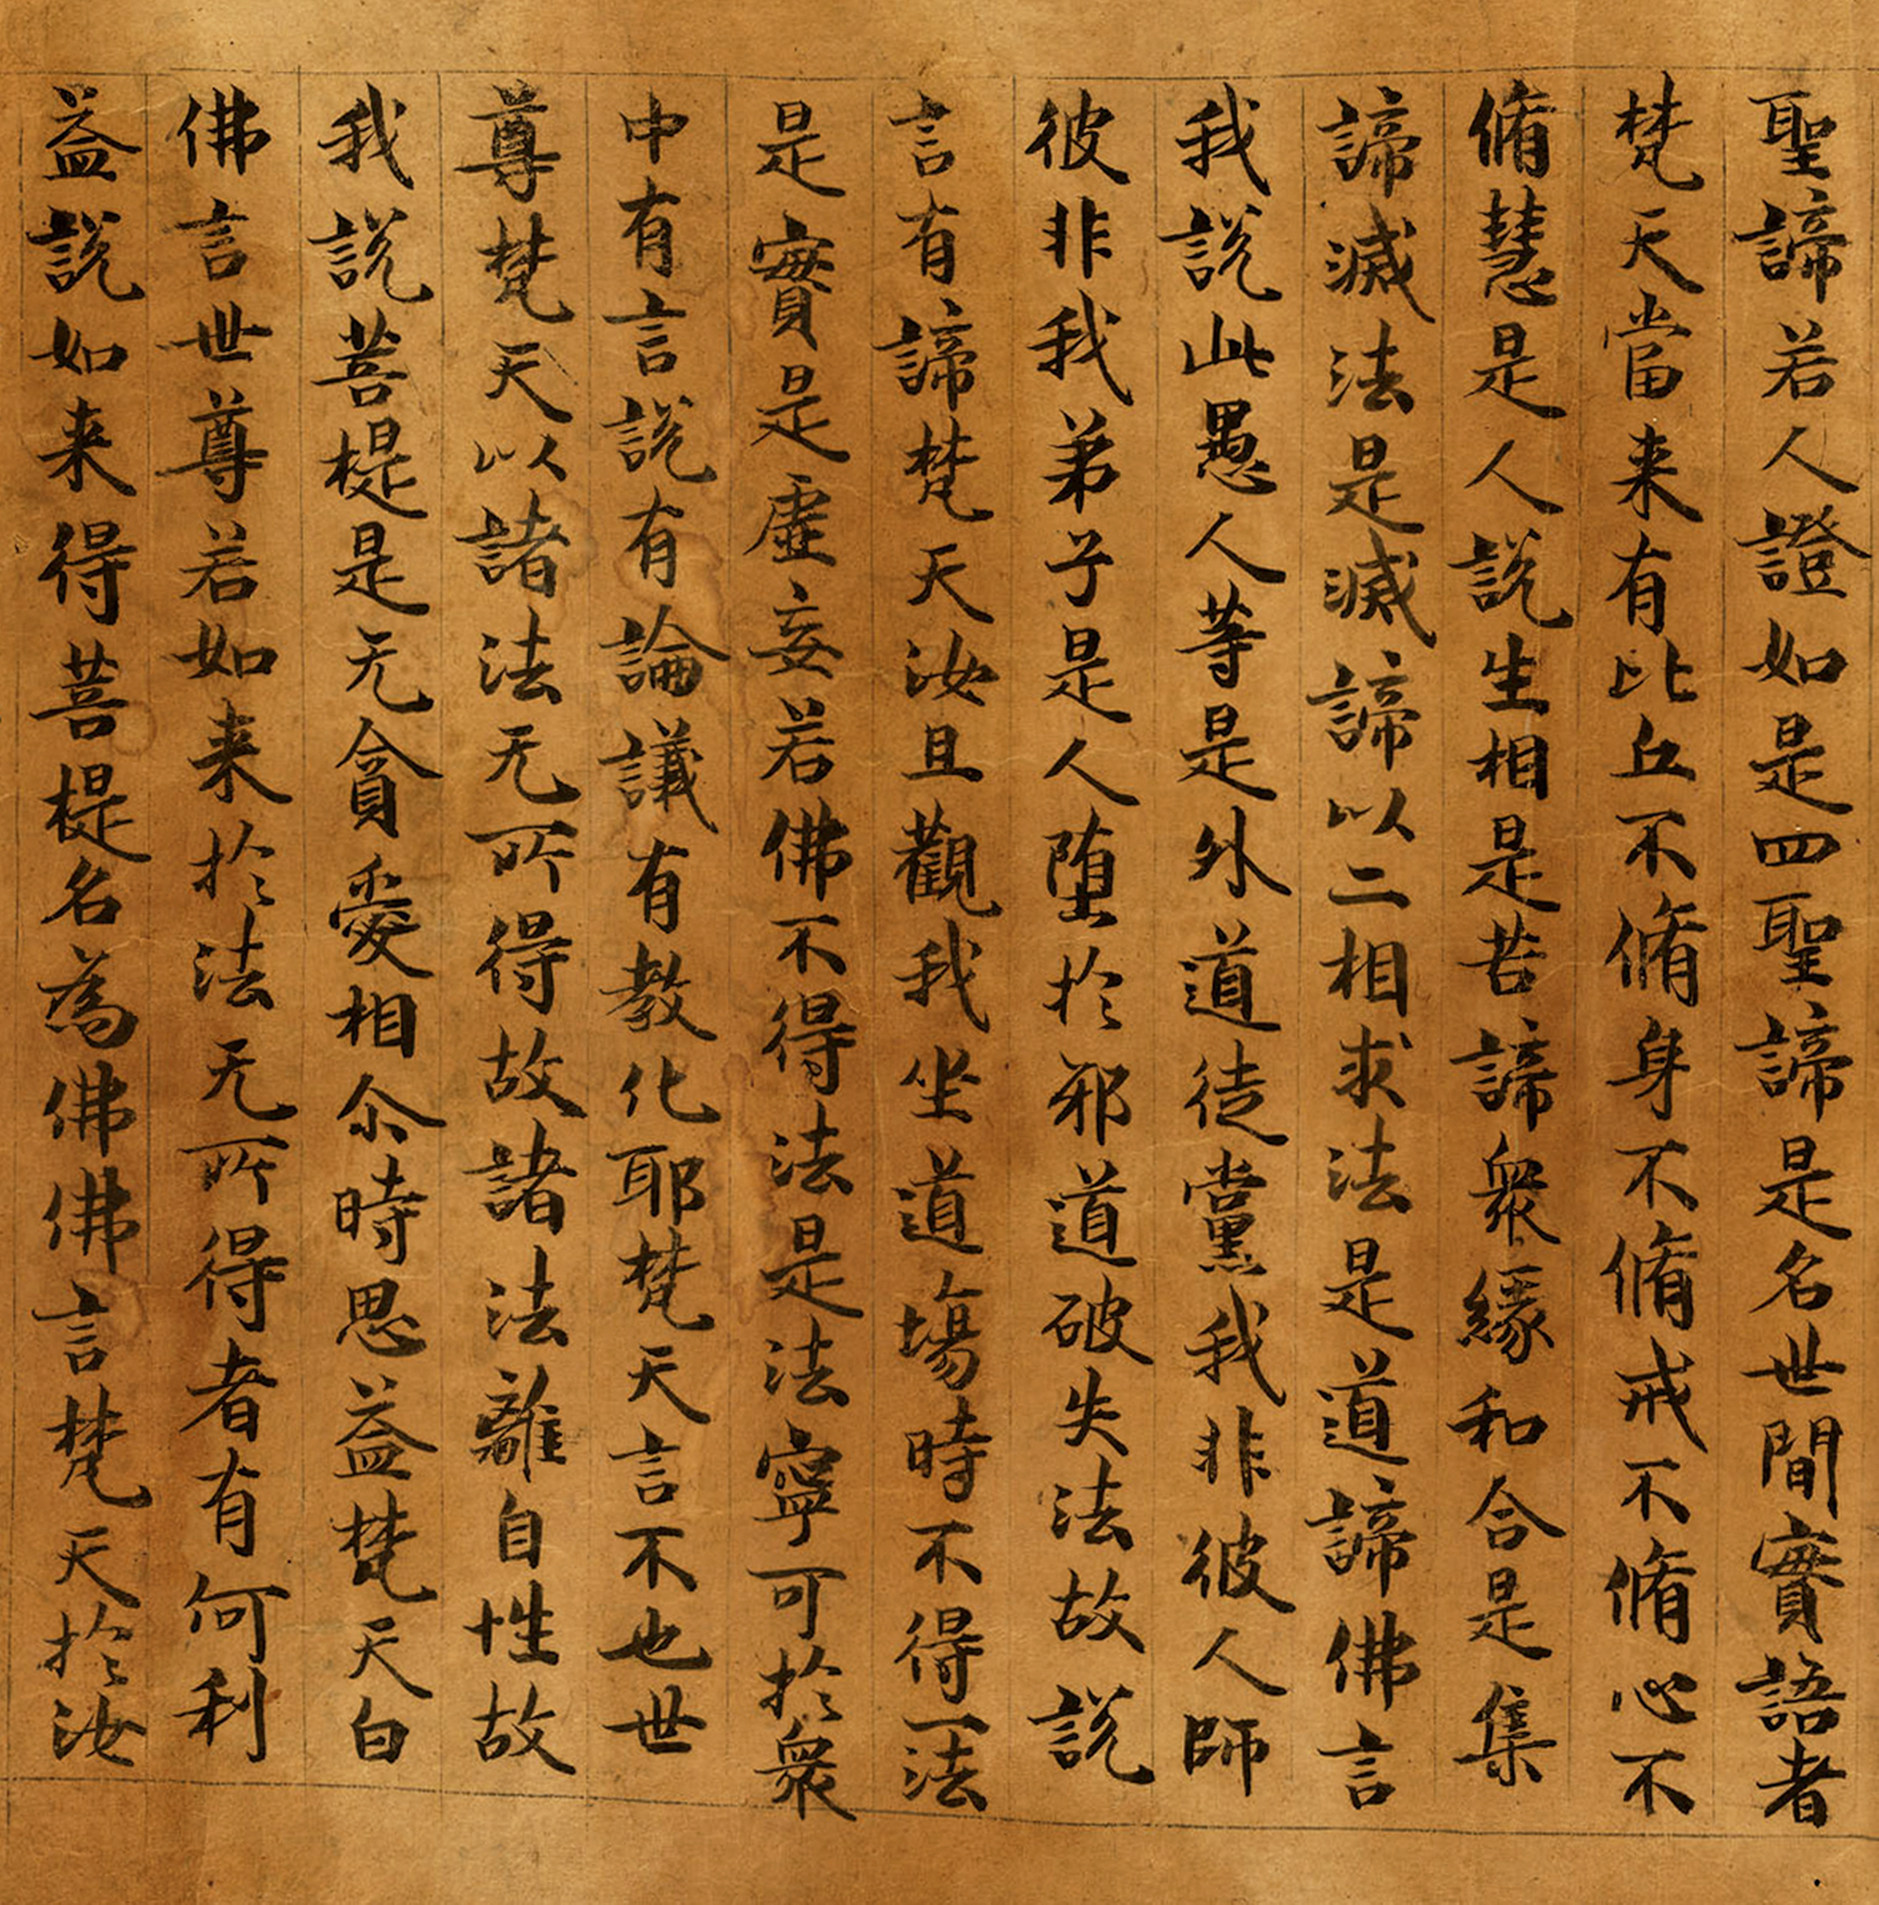 聖諦若人證如是四聖諦是名世間實語者
梵天當来有比丘不脩身不脩戒不脩心不
脩慧是人說生相是苦諦衆緣和合是集
諦滅法是滅諦以二相求法是道諦佛言
我說此愚人等是外道徒黨我非彼人師
彼非我弟子是人堕於邪道破失法故說
言有諦梵天汝且觀我坐道場時不得一法
是實是虛妄若佛不得法是法寧可於衆
中有言說有論議有教化耶梵天言不也世
尊梵天以諸法无所得故諸法離自性故
我說菩提是无貪愛相尒時思益梵天白
佛言世尊若如来於法无所得者有何利
益說如来得菩提名為佛佛言梵天於汝